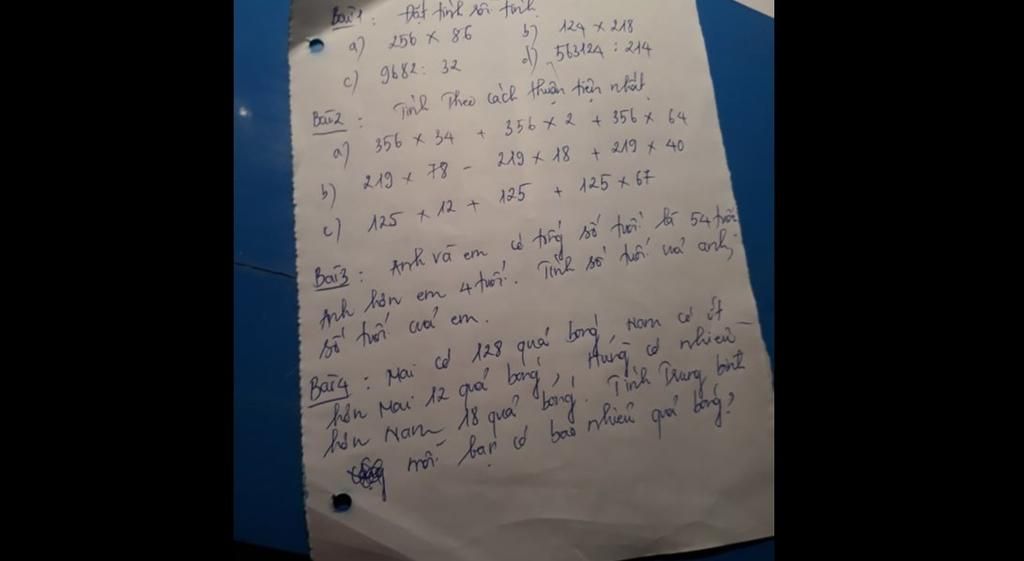 Bài 1 : Đặt tính rồi tính
a) 256 × 86 b) 124 × 218
c) 9682 : 32 d) 563124 : 214
Bài 2 : Tính theo cách thuận tiện nhất
a) 356 × 34 + 356 × 2 + 356 × 64
b) 219 × 78 - 219 × 18 + 219 × 40
c) 125 × 12 + 125 + 125 × 67
Bài 3 : Anh và em có tổng số tuổi là 54 tuổi
Anh hơn em 4 tuổi. Tính số tuổi của anh,
số tuổi của em.
Bài 4 : Mai có 128 quả bóng, Nam có ít
hơn Mai 12 quả bóng, Hùng có nhiều
hơn Nam 18 quả bóng. Tính Trung bình
mỗi bạn có bao nhiêu quả bóng?